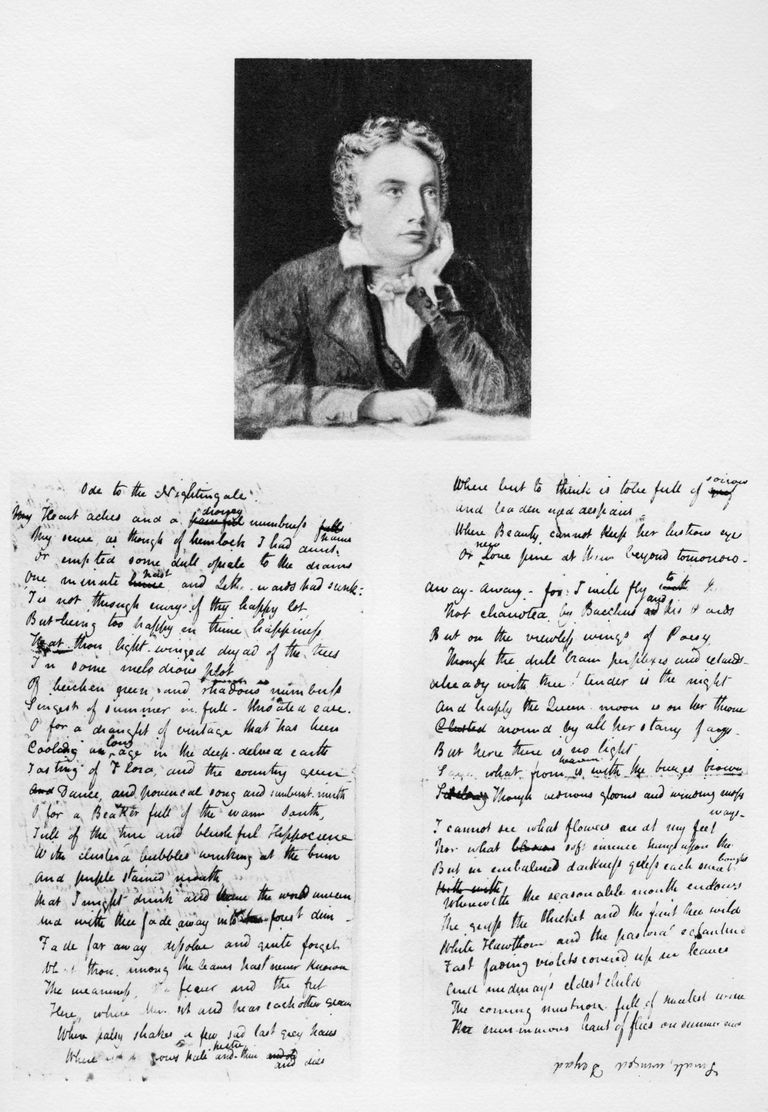 Ode to the Nightingale
My Heart aches and a painful drowsy numbness falls
My sense as though of hemlock I had drunk
Or emptied some dull opiate to the drains
One minute hence past and Lethe-wards had sunk:
Tis not through envy of thy happy lot
But being too happy in thine happiness
That thou light-winged dryad of the trees
In some melodious plot
Of beechen green and shadows numberless
Singest of summer in full-throated ease.
O for a draught of vintage that has been
Cooling an long age in the deep-delved earth
Tasting of Flora and the country green
And Dance, and provencal song and sunburnt mirth
O for a Beaker full of the warm South,
Full of the true and blushful Hippocrene
With clusterd bubbles winking at the brim
And purple stained mouth
That I might drink and leave the world unseen
And with thee fade away into the forest dim-
Fade far away dissolve and quite forget
What thou among the leaves hast never known
The weariness the fever and the fret
Here, where Men sit and hear each other groan
Where palsy shakes a few sad last grey hairs
Where grows pale and thin and
and dies
Where but to think is to be full of sorrow
and leaden eyed despairs
Where Beauty cannot keep her lustrous eyes
Or new Love pine at them beyond tomorrow-
Away-away-for I will fly to thee
Not charioted by Bacchus and his Pards
But on the viewless wings of Poesy
Though the dull brain perplexes and retards-
Already with thee! tender is the night
And haply the Queen-moon is on her throne
Clusterd around by all her starry fays-
But here there is no light
Save what from heaven is with the breezes blown
Through verdurous glooms and winding mossy
ways-
I cannot see what flowers are at my feet
Nor what soft incense hangs upon the boughs
But in embalmed darkness guess each sweet
Wherewith the seasonable month endows
The grass the thicket and the fruit tree wild
White Hawthorn and the pastoral eglantine
Fast fading violets covered up in leaves
And midmay's eldest child
The coming muskrose full of sweetest wine
The murmurous haunt of flies on summer eves
Small, winged Dryad